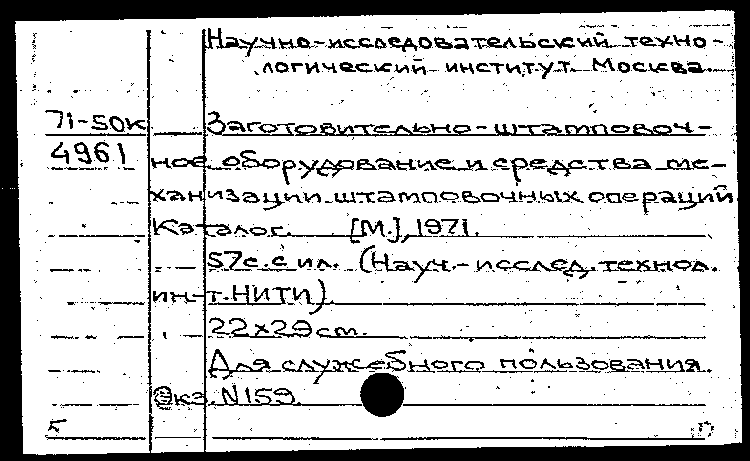 Научно-исследовательский техно-
логический институт. Москва.
71-50к Заготовительно-штамповоч-
4961 ное оборудование и средства ме-
ханизации штамповочных операций
Каталог. [М.], 1971.
57с. с ил. (Науч.-исслед. технол.
ин-т. НИТИ).
22х29 см.
Для служебного пользования.
Экз. N 159.
Б